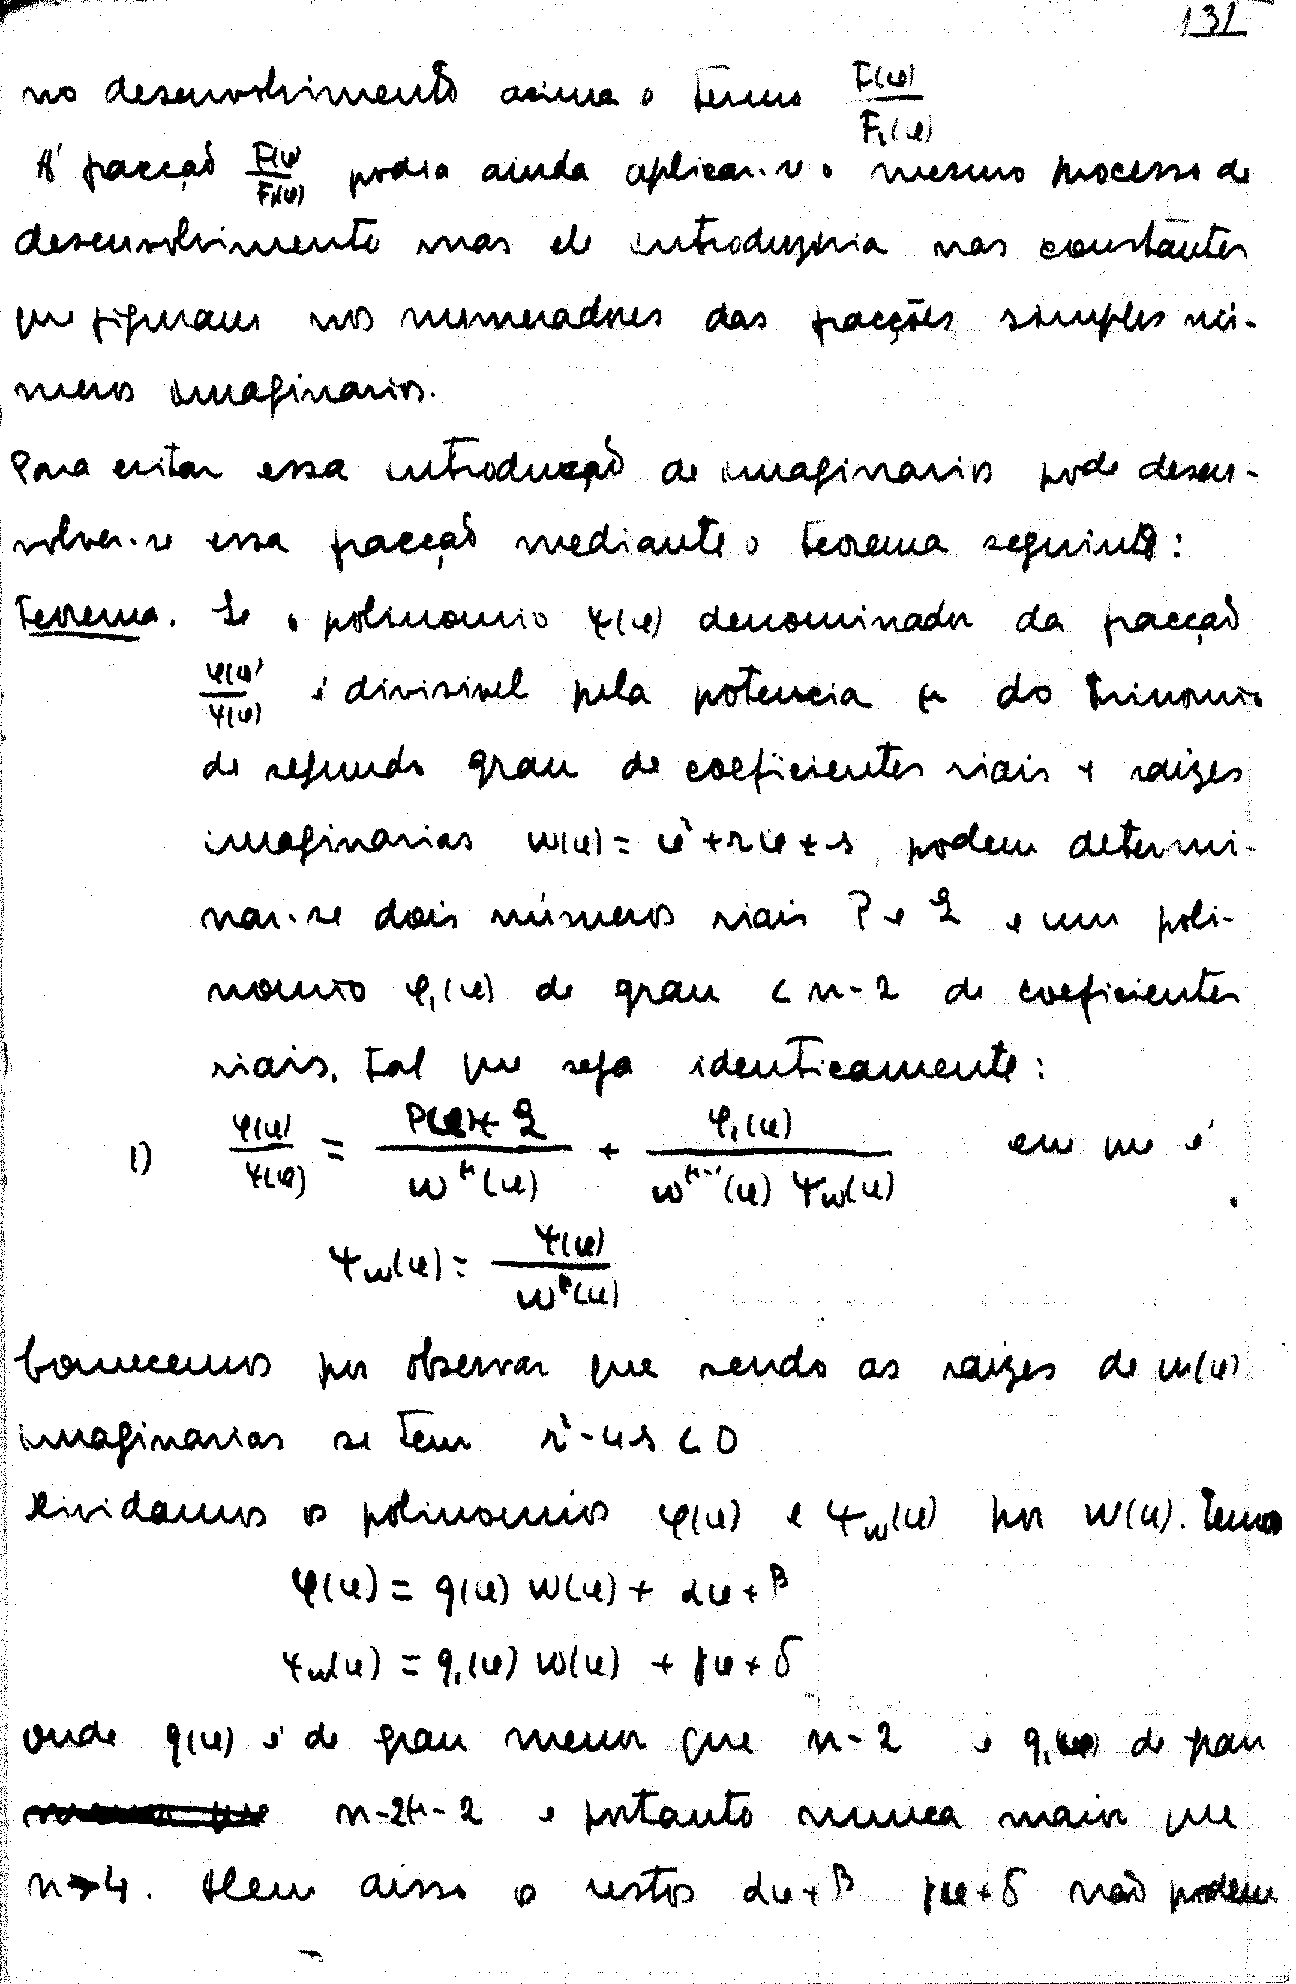 131
no desenvolvimento acima o termo F(x)/F₁(x)
A' fracção F(x)/F₁(x) podia ainda aplicar-se o mesmo processo de
desenvolvimento mas ele introduziria nas constantes
que figuram nos numeradores das fracções simples nú-
meros imaginarios.
Para evitar essa introducção de imaginarios pode desen-
volver-se essa fracção mediante o teorema seguinte:
Teorema. Se o polinomio ψ(x) denominador da fracção
φ(x)/ψ(x) é divisivel pela potencia μ do trinomio
de segundo grau de coeficientes riais e raizes
imaginarias w(x) = x²+rx+s, podem determi-
nar-se dois números riais P e Q e um poli-
nomio φ₁(x) de grau < n-2 de coeficientes
riais, tal que seja identicamente:
1) φ(x)/ψ(x) = (P(x)+Q)/(w^μ(x)) + φ₁(x)/(w^(μ-1)(x) ψ_w(x)) em que é
ψ_w(x) = ψ(x)/w^μ(x)
Comecemos por observar que sendo as raizes de w(x)
imaginarias se tem r²-4s < 0
Dividamos os polinomios φ(x) e ψ_w(x) por w(x). Temos
φ(x) = q(x) w(x) + αx+β
ψ_w(x) = q₁(x) w(x) + γx+δ
onde q(x) é de grau menor que n-2 e q₁(x) de grau
n-2μ-2 e portanto nunca maior que
n-4. Alem disso os restos αx+β γx+δ não podem